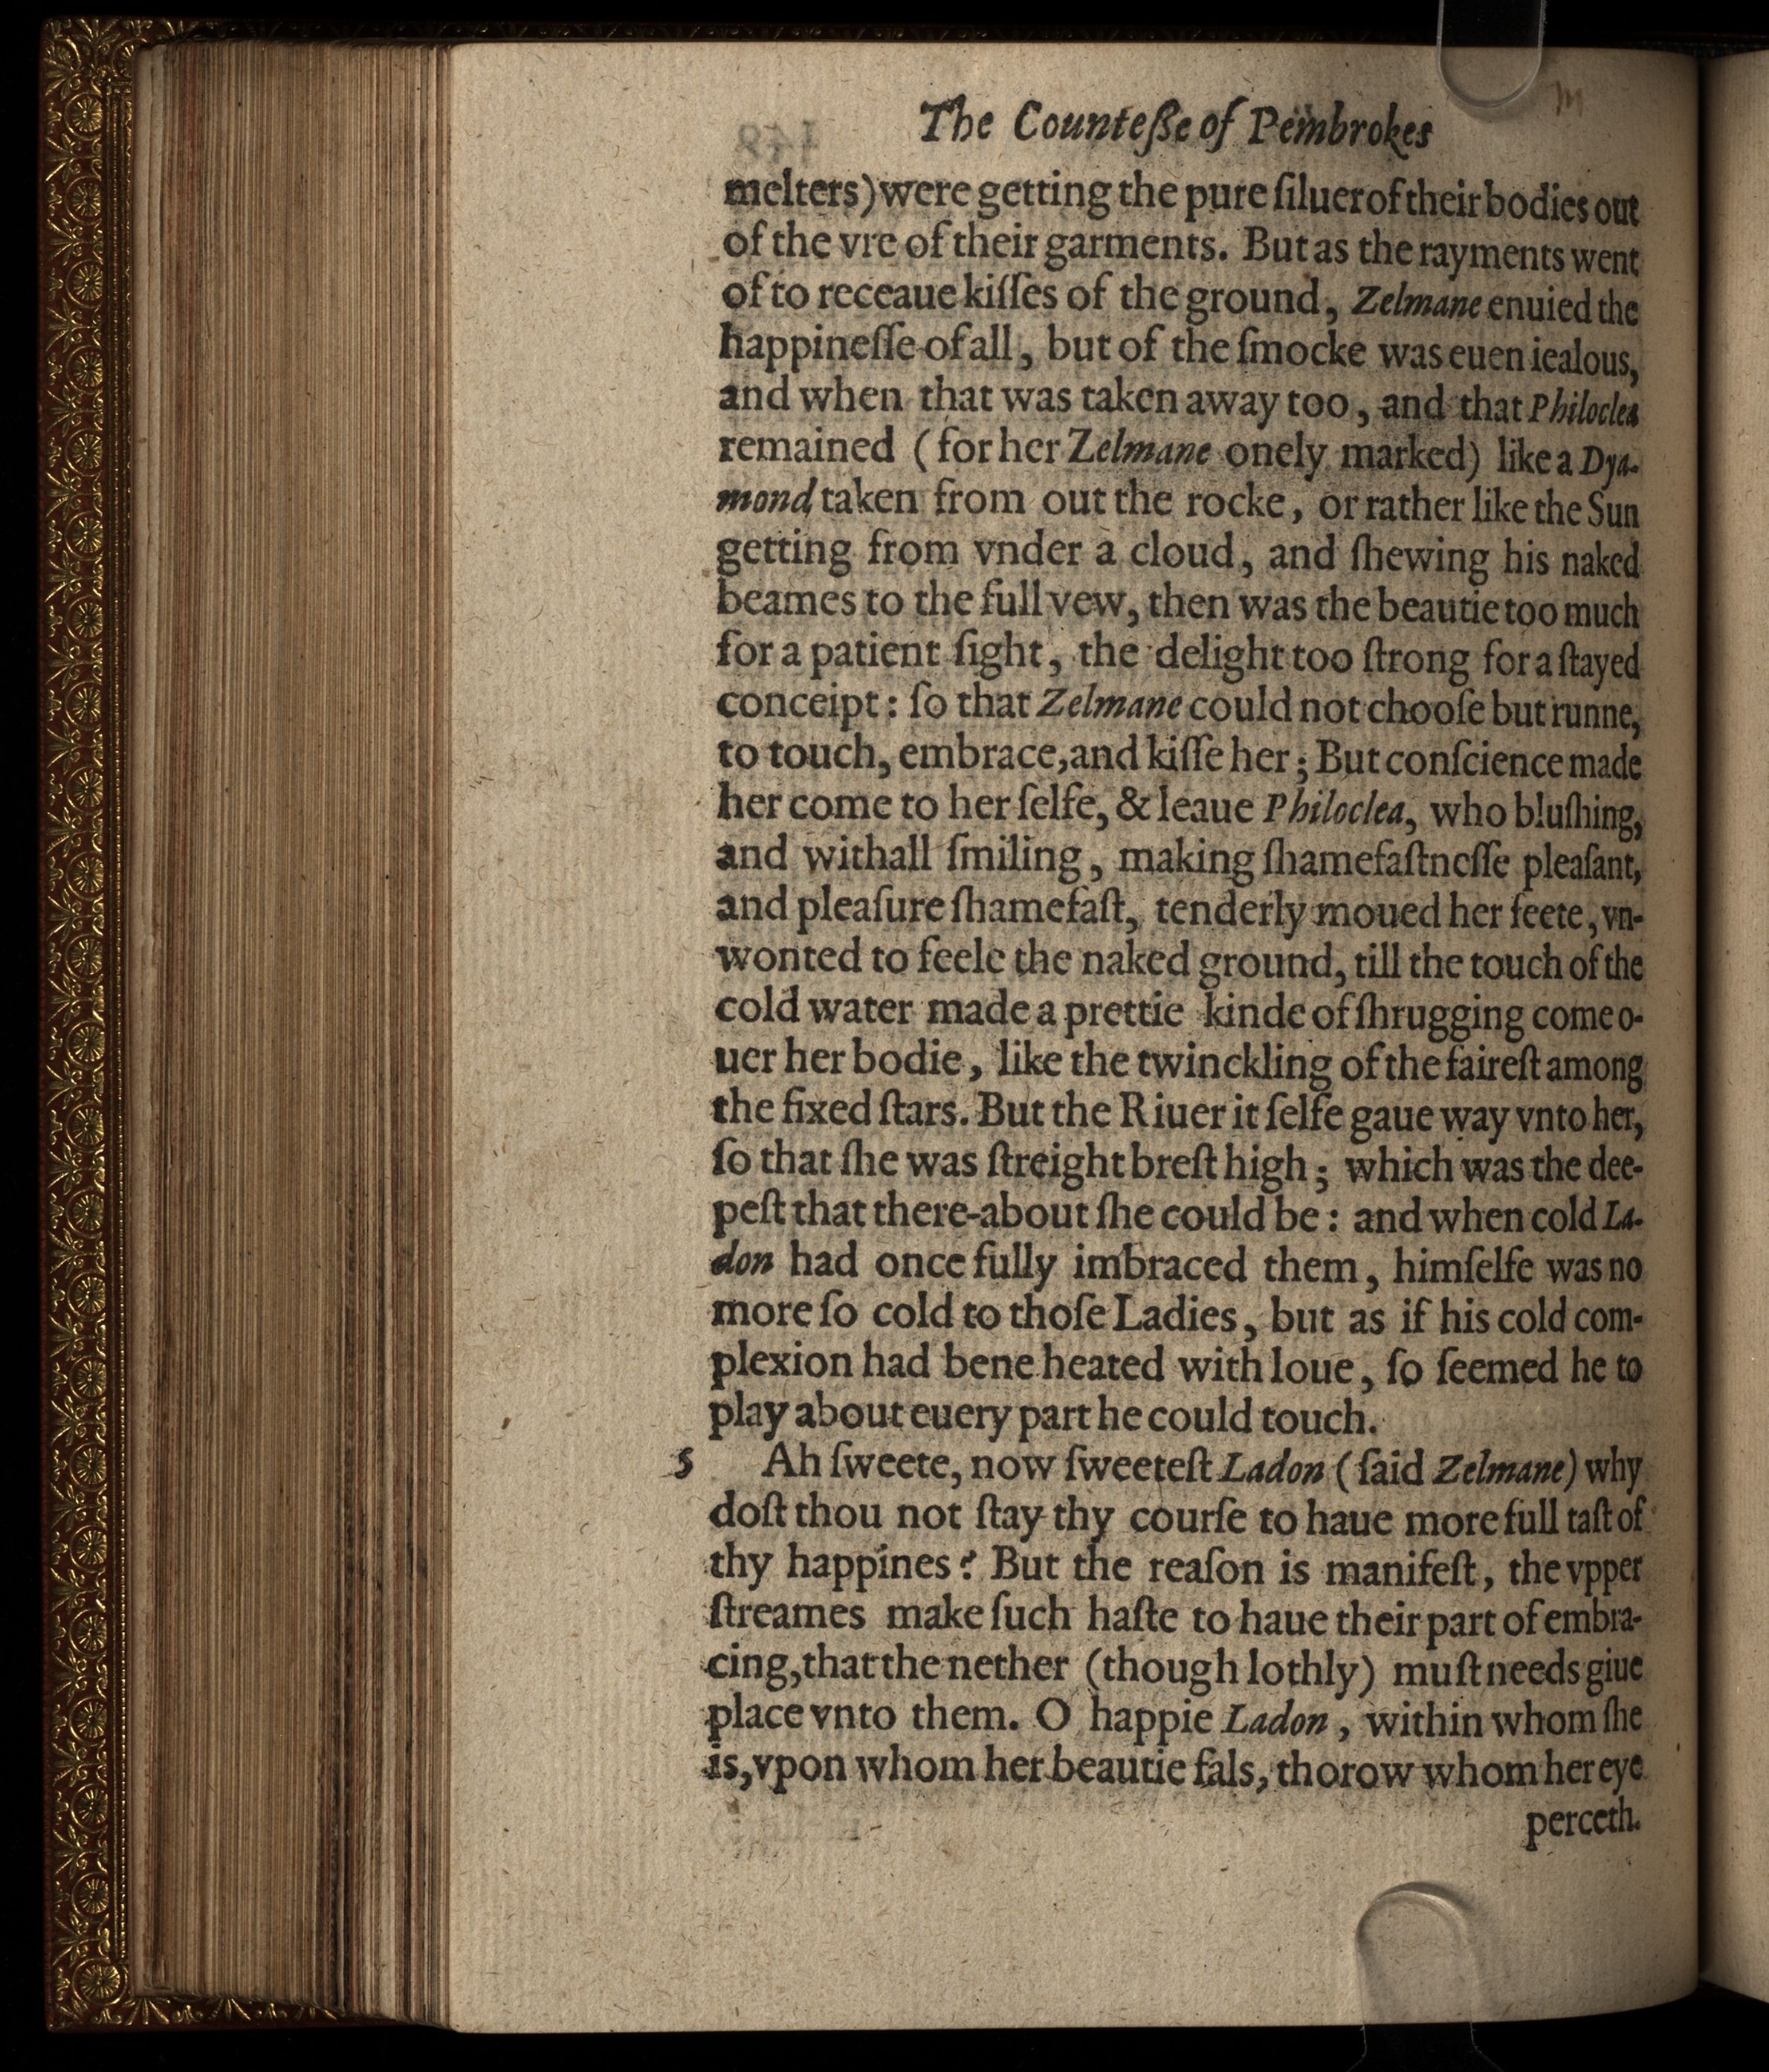 The Counteße of Pembrokes
melters) were getting the pure ſiluer of their bodies out
of the vre of their garments. But as the rayments went
of to receaue kiſſes of the ground, Zelmane enuied the
happineſſe of all, but of the ſmocke was euen iealous,
and when that was taken away too, and that Philoclea
remained (for her Zelmane onely marked) like a Dya-
mond taken from out the rocke, or rather like the Sun
getting from vnder a cloud, and ſhewing his naked
beames to the full vew, then was the beautie too much
for a patient ſight, the delight too ſtrong for a ſtayed
conceipt: ſo that Zelmane could not chooſe but runne,
to touch, embrace, and kiſſe her; But conſcience made
her come to her ſelfe, & leaue Philoclea, who bluſhing,
and withall ſmiling, making ſhamefaſtneſſe pleaſant,
and pleaſure ſhamefaſt, tenderly moued her feete, vn-
wonted to feele the naked ground, till the touch of the
cold water made a prettie kinde of ſhrugging come o-
uer her bodie, like the twinckling of the faireſt among
the fixed ſtars. But the Riuer it ſelfe gaue way vnto her,
ſo that ſhe was ſtreight breſt high; which was the dee-
peſt that there-about ſhe could be: and when cold La-
don had once fully imbraced them, himſelfe was no
more ſo cold to thoſe Ladies, but as if his cold com-
plexion had bene heated with loue, ſo ſeemed he to
play about euery part he could touch.
5 Ah ſweete, now ſweeteſt Ladon (ſaid Zelmane) why
doſt thou not ſtay thy courſe to haue more full taſt of
thy happines? But the reaſon is manifeſt, the vpper
ſtreames make ſuch haſte to haue their part of embra-
cing, that the nether (though lothly) muſt needs giue
place vnto them. O happie Ladon, within whom ſhe
is, vpon whom her beautie fals, thorow whom her eye
perceth.